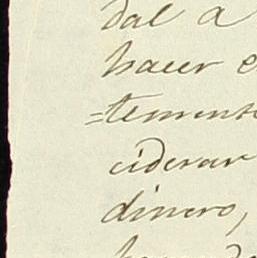 dal a
hacer e
=tement
ciderar
dinero,